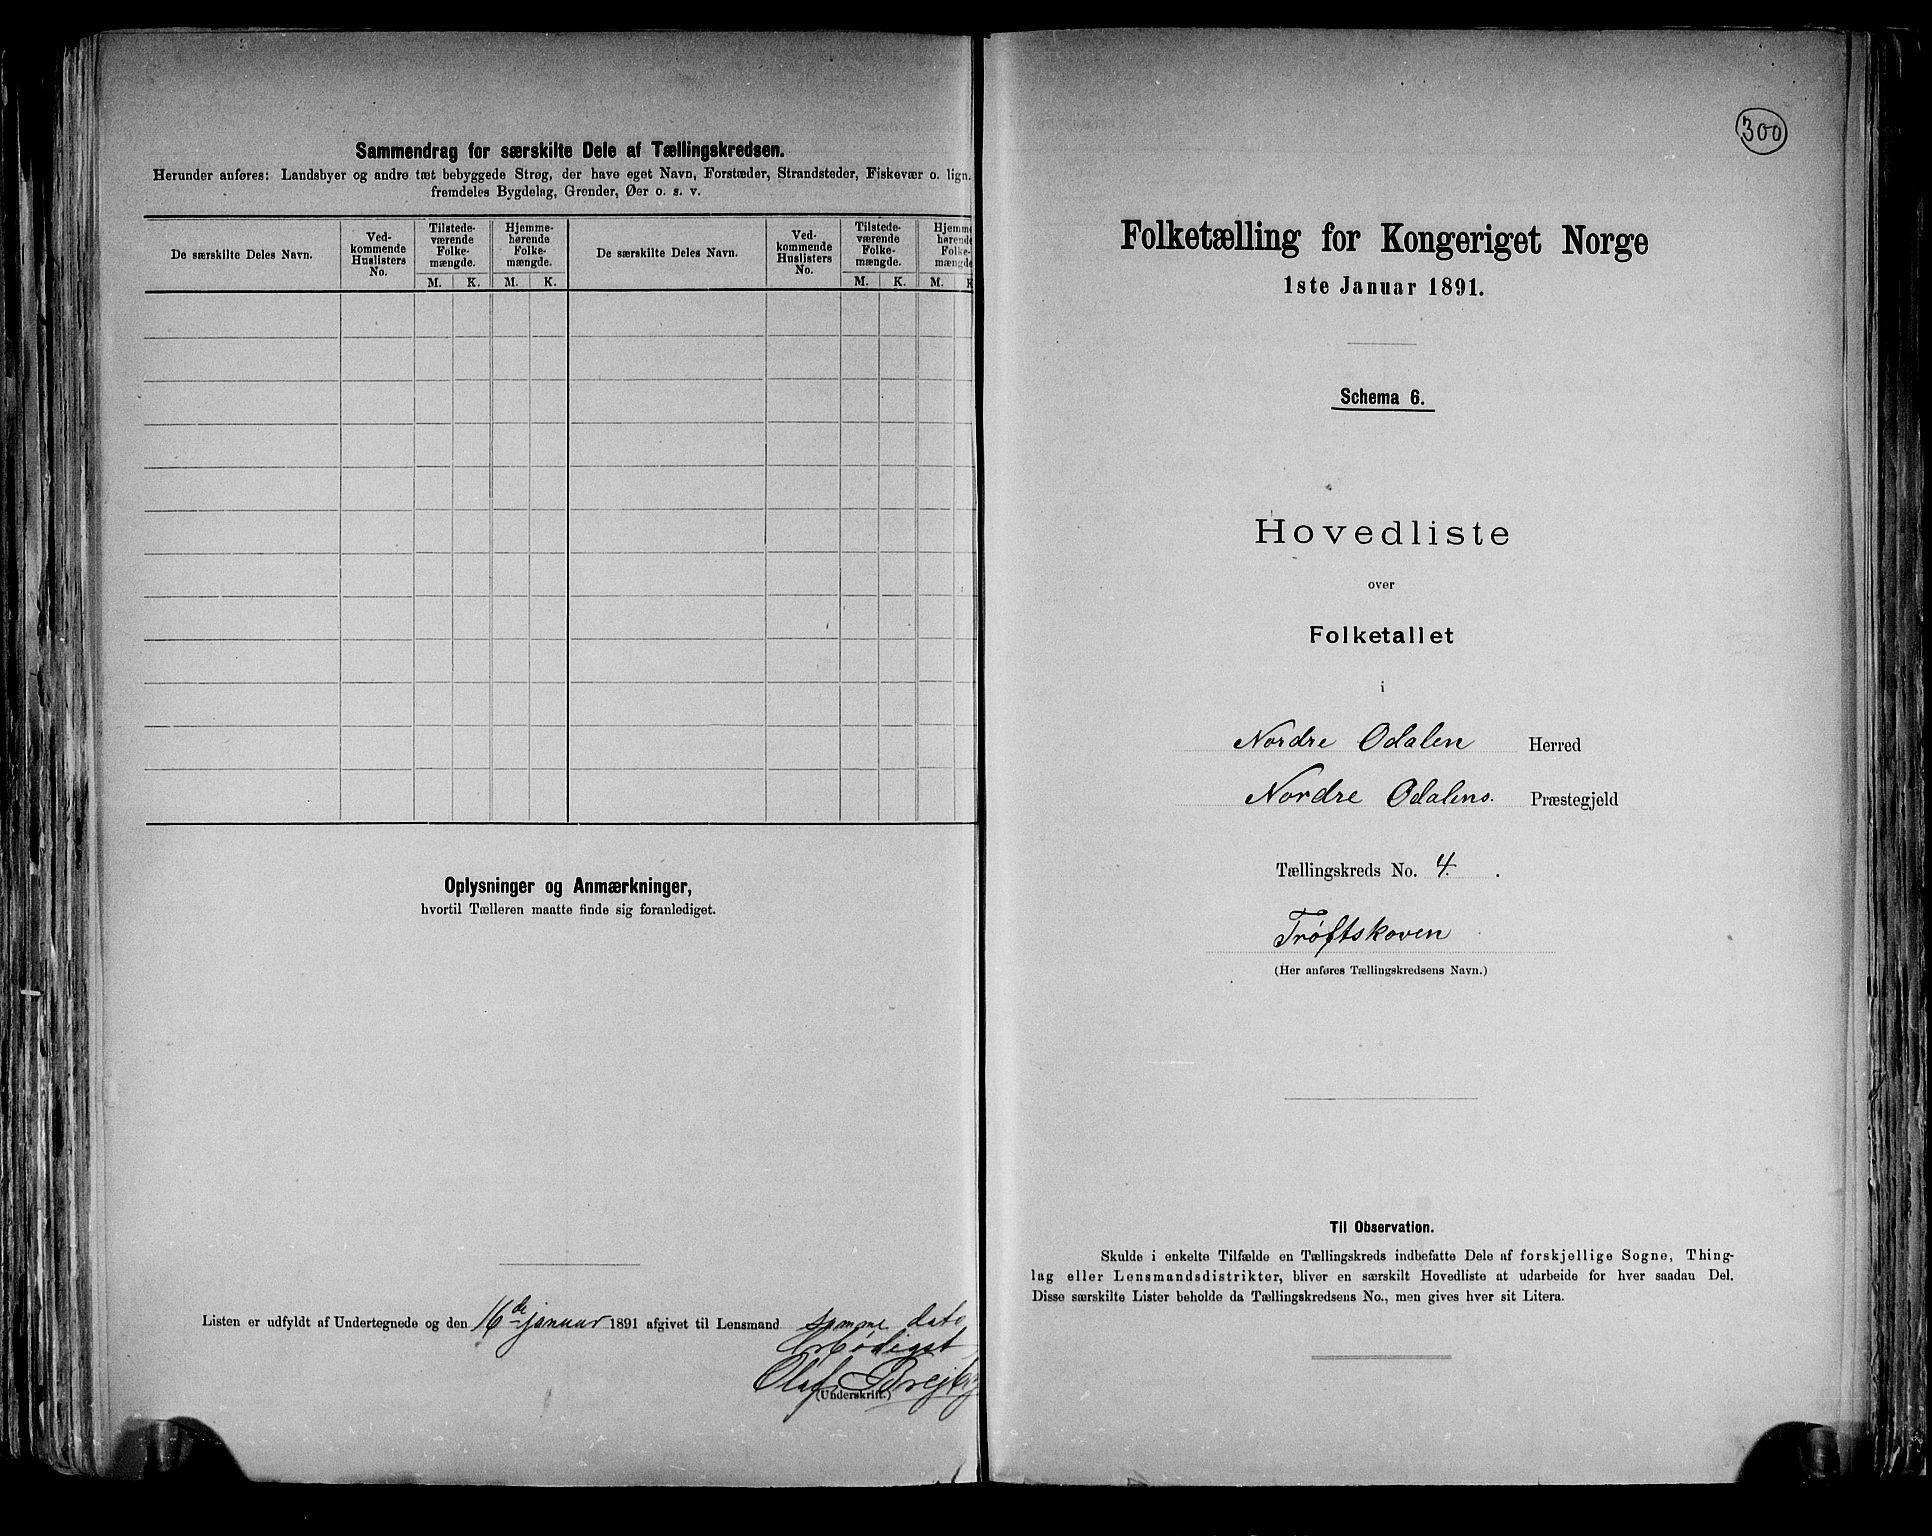 Sammendrag for særskilte Dele af Tællingskredsen.
Herunder anføres: Landsbyer og andre tæt bebyggede Strøg, der have eget Navn, Forstæder, Strandsteder, Fiskevær o. lign.
fremdeles Bygdelag, Grender, Øer o. s. v.
De særskilte Deles Navn.
Ved-
kommende
Huslisters
No.
Tilstede-
værende
Folke-
mængde.
M. K.
Hjemme-
hørende
Folke-
mængde.
M. K.
De særskilte Deles Navn.
Ved-
kommende
Huslisters
No.
Tilstede-
værende
Folke-
mængde.
M. K.
Hjemme
hørende
Folke-
mængde
M. K
Oplysninger og Anmærkninger,
hvortil Tælleren maatte finde sig foranlediget.
Listen er udfyldt af Undertegnede og den 16de januar 1891 afgivet til Lensmand samme dato
Ærbødigst
Olaf Brejby
(Underskrift.)
300
Folketælling for Kongeriget Norge
1ste Januar 1891.
Schema 6.
Hovedliste
over
Folketallet
i
Nordre Odalen Herred
Nordre Odalens. Præstegjeld
Tællingskreds No. 4. .
Trøftskoven
(Her anføres Tællingskredsens Navn.)
Til Observation.
Skulde i enkelte Tilfælde en Tællingskreds indbefatte Dele af forskjellige Sogne, Thing-
lag eller Lensmandsdistrikter, bliver en særskilt Hovedliste at udarbeide for hver saadan Del.
Disse særskilte Lister beholde da Tællingskredsens No., men gives hver sit Litera.